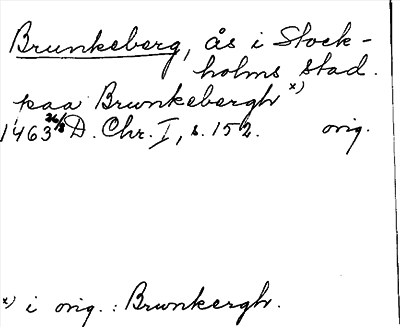 Brunkeberg, ås i Stock-
holms stad.
paa Brunkebergh x)
1463 26/8 D. Chr. I, s. 152. orig.
x) i orig.: Brunkergh.